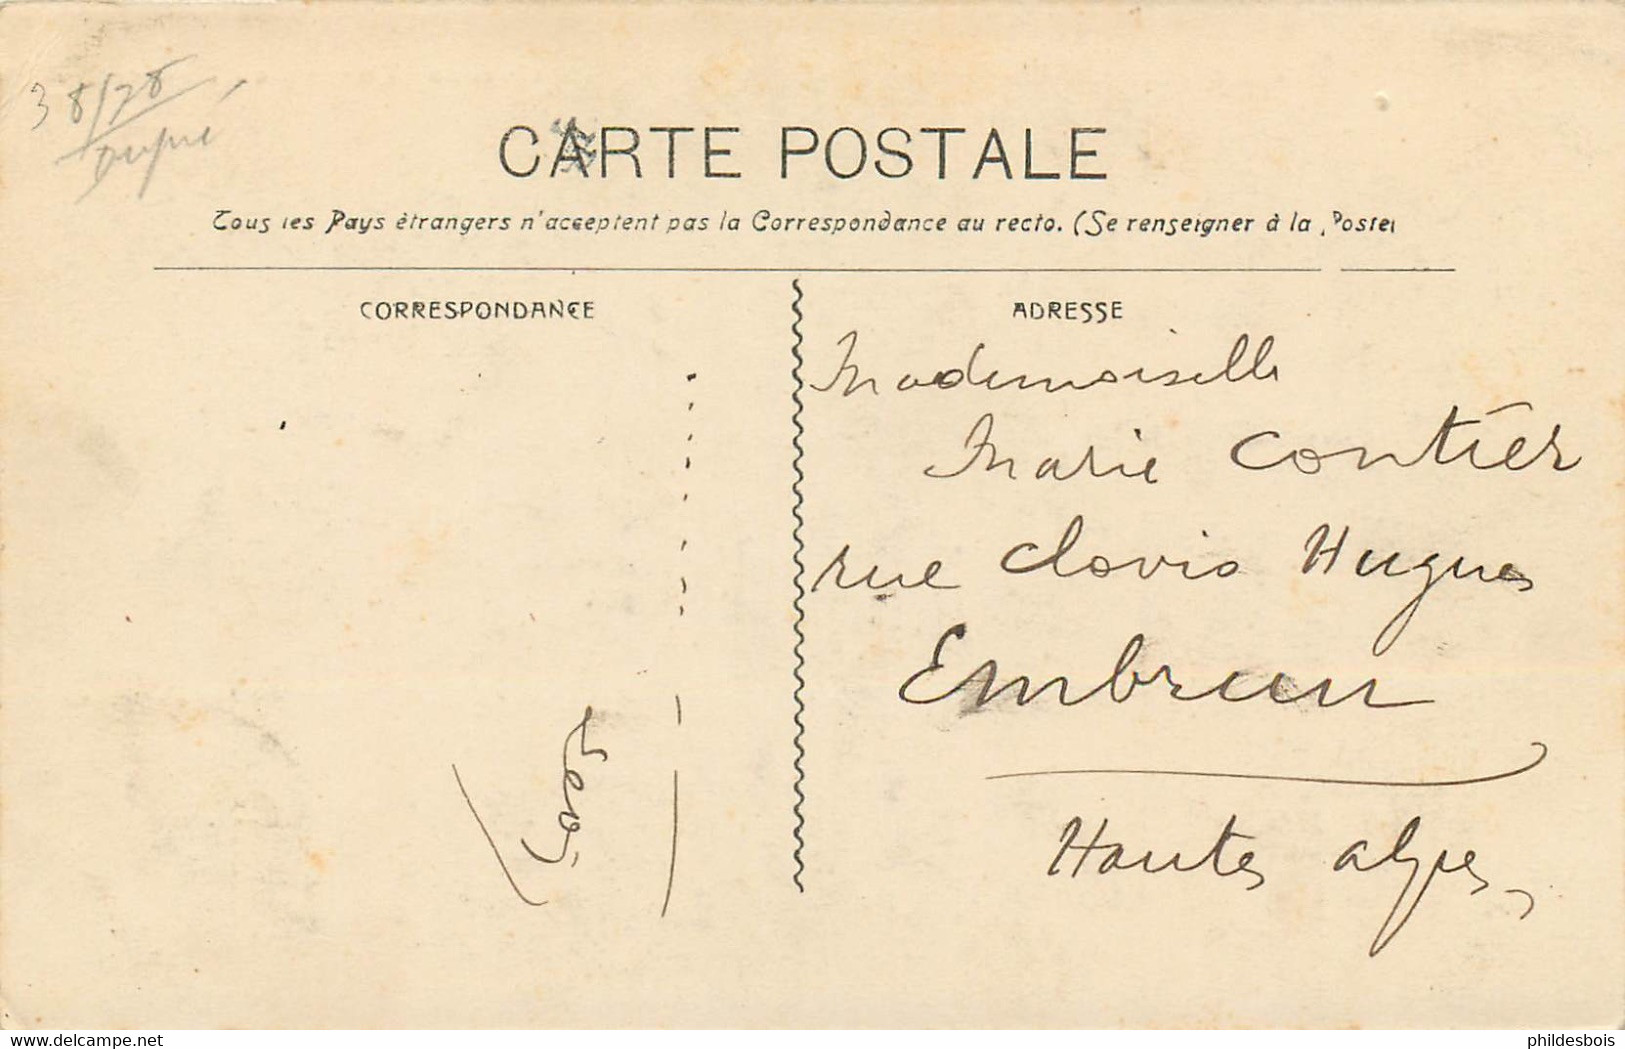 38/28
CARTE POSTALE
Tous les Pays étrangers n'acceptent pas la Correspondance au recto. (Se renseigner à la Poste)
CORRESPONDANCE
ADRESSE
Mademoiselle
Marie Contier
rue Clovis Hugues
Embrun
Hautes alpes
www.delcampe.net
phildesbois